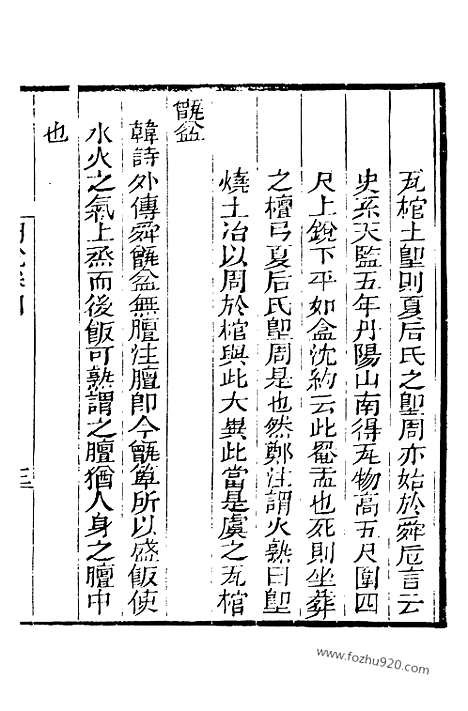 瓦棺土堲則夏后氏之堲周亦始於舜卮言云
史系天監五年丹陽山南得瓦物高五尺圍四
尺上銳下平如盒沈約云此罨盂也死則坐葬
之檀弓夏后氏堲周是也然鄭注謂火熟曰堲
燒土冶以周於棺與此大異此當是虞之瓦棺
甑盆
韓詩外傳舜甑盆無膻注膻即今甑箄所以盛飯使
水火之氣上烝而後飯可熟謂之膻猶人身之膻中
也
三
www.fozhu920.com